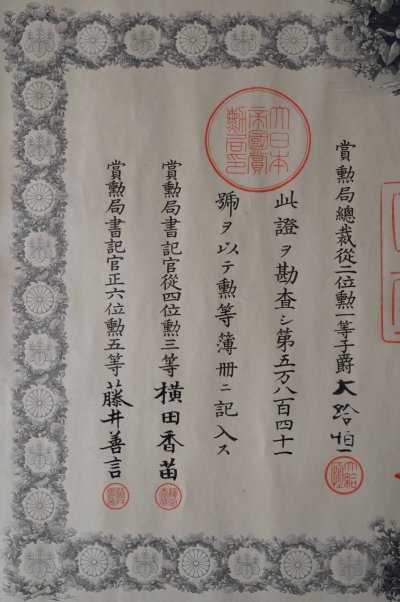 賞勲局總裁從二位勲一等子爵大給恒
此證ヲ勘査シ第五万八百四十一
號ヲ以テ勲等簿册ニ記入ス
賞勲局書記官從四位勲三等横田香苗
賞勲局書記官正六位勲五等藤井善言
大日本
帝國賞
勲局印